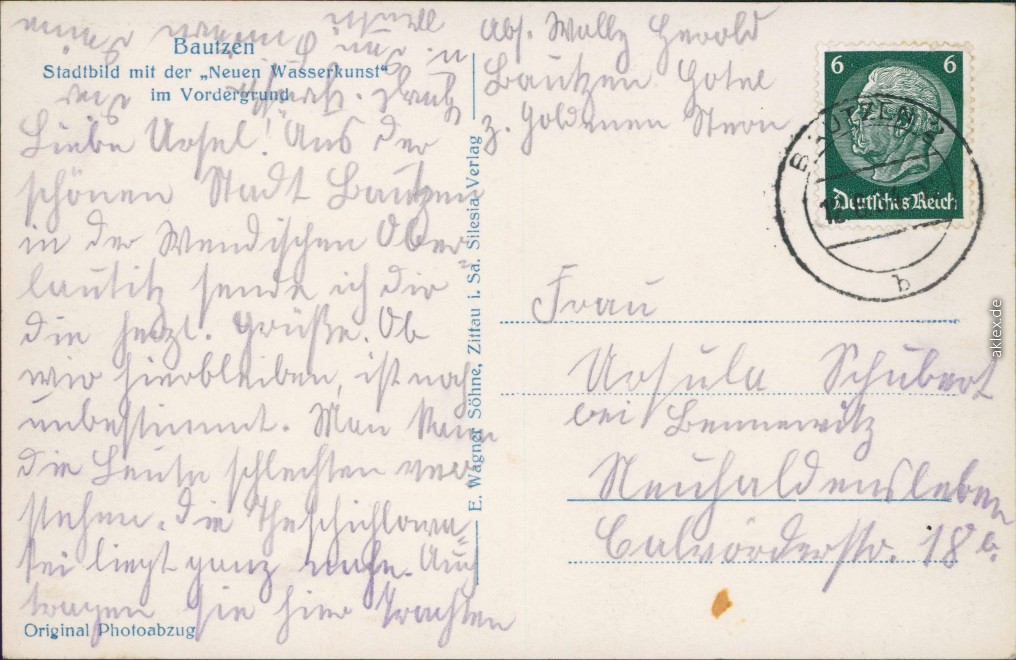 Bautzen
Stadtbild mit der „Neuen Wasserkunst“
im Vordergrund
Liebe Ursel! Aus der
schönen Stadt Bautzen
in der Wendischen Ober=
lausitz sende ich Dir
die herzl. Grüße. Ob
wir hierbleiben, ist noch
unbestimmt. Man kann
die Leute schlechten ver=
stehen. die
liegt ganz nahe. Auch
tragen sie hier Trachten
Original Photoabzug
E. Wagner Söhne, Zittau i. Sa. Silesia-Verlag
Abs. Wally Herold
Bautzen Hotel
z. Goldenen Stern
6 6
Deutsches Reich
BAUTZEN
b
Frau
Ursula Schubert
bei Bennewitz
Neuhaldensleben
Calvörderstr. 18 b.
aklex.de